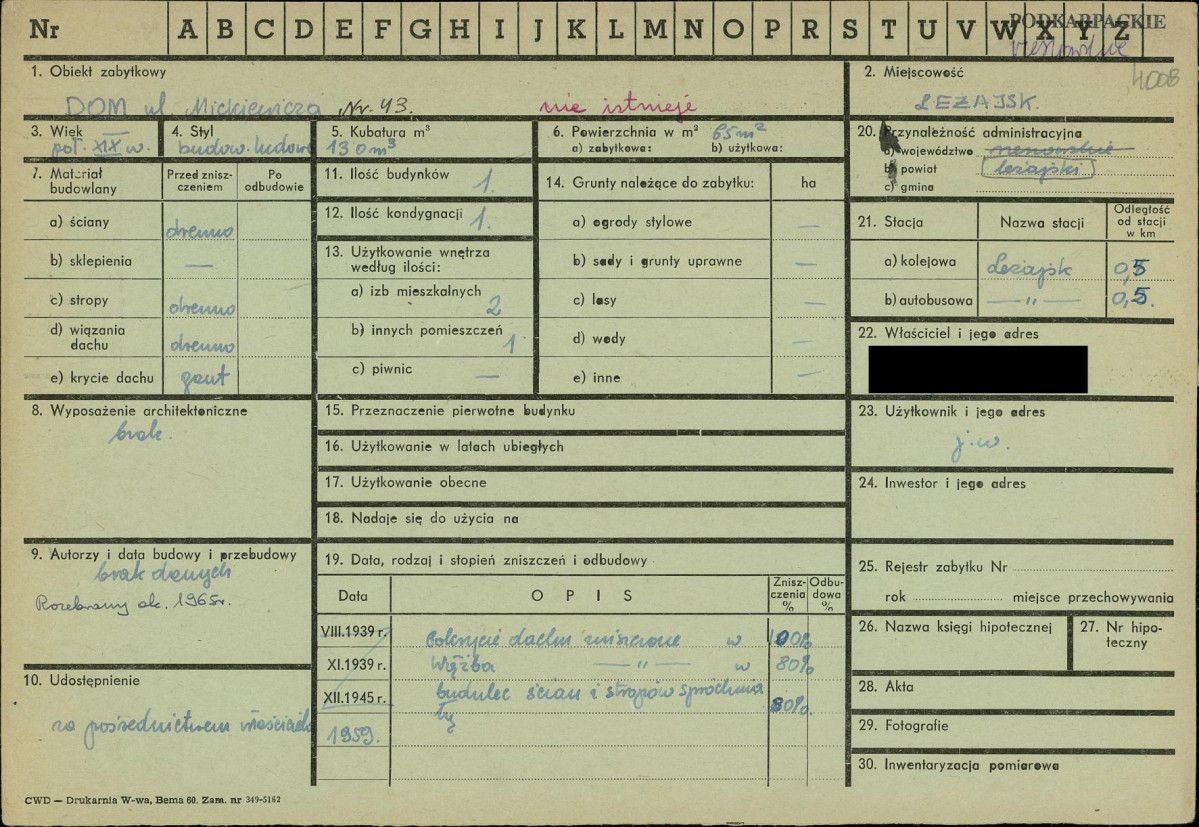 Nr A B C D E F G H I J K L M N O P R S T U V W X Y Z
PODKARPACKIE
4008
1. Obiekt zabytkowy
DOM ul. Mickiewicza Nr. 43. nie istnieje
2. Miejscowość
LEŻAJSK.
3. Wiek
poł. XIX w.
4. Styl
budow. ludowe
5. Kubatura m³
130 m³
6. Powierzchnia w m² 65 m²
a) zabytkowa: b) użytkowa:
7. Materiał budowlany
Przed zniszczeniem
Po odbudowie
a) ściany drewno
b) sklepienia —
c) stropy drewno
d) wiązania dachu drewno
e) krycie dachu gont
8. Wyposażenie architektoniczne
brak.
9. Autorzy i data budowy i przebudowy
brak danych
Rozebrany ok. 1965r.
10. Udostępnienie
za pośrednictwem właściciela
11. Ilość budynków 1.
12. Ilość kondygnacji 1.
13. Użytkowanie wnętrza
według ilości:
a) izb mieszkalnych 2
b) innych pomieszczeń 1
c) piwnic —
14. Grunty należące do zabytku: ha
a) ogrody stylowe —
b) sady i grunty uprawne —
c) lasy —
d) wody —
e) inne —
15. Przeznaczenie pierwotne budynku
16. Użytkowanie w latach ubiegłych
17. Użytkowanie obecne
18. Nadaje się do użycia na
19. Data, rodzaj i stopień zniszczeń i odbudowy
Data OPIS Zniszczenia % Odbudowa %
VIII.1939 r. Pokrycie dachu zniszczone w 100%
XI.1939 r. Więźba — " — w 80%
XII.1945 r. budulec ścian i stropów spróchnia
ły 80%
1959.
20. Przynależność administracyjna
a) województwo rzeszowskie
b) powiat leżajski
c) gmina
21. Stacja Nazwa stacji Odległość od stacji w km
a) kolejowa Leżajsk 0,5
b) autobusowa — " — 0,5.
22. Właściciel i jego adres
23. Użytkownik i jego adres
j.w.
24. Inwestor i jego adres
25. Rejestr zabytku Nr
rok miejsce przechowywania
26. Nazwa księgi hipotecznej
27. Nr hipoteczny
28. Akta
29. Fotografie
30. Inwentaryzacja pomiarowa
CWD — Drukarnia W-wa, Bema 60. Zam. nr 349-5162